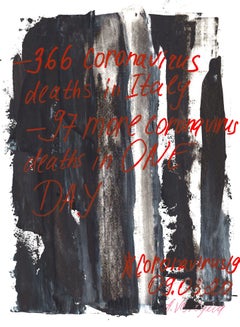 -366 coronavirus
deaths in Italy
-97 more coronavirus
deaths in ONE
DAY
#coronavirus
09.03.20